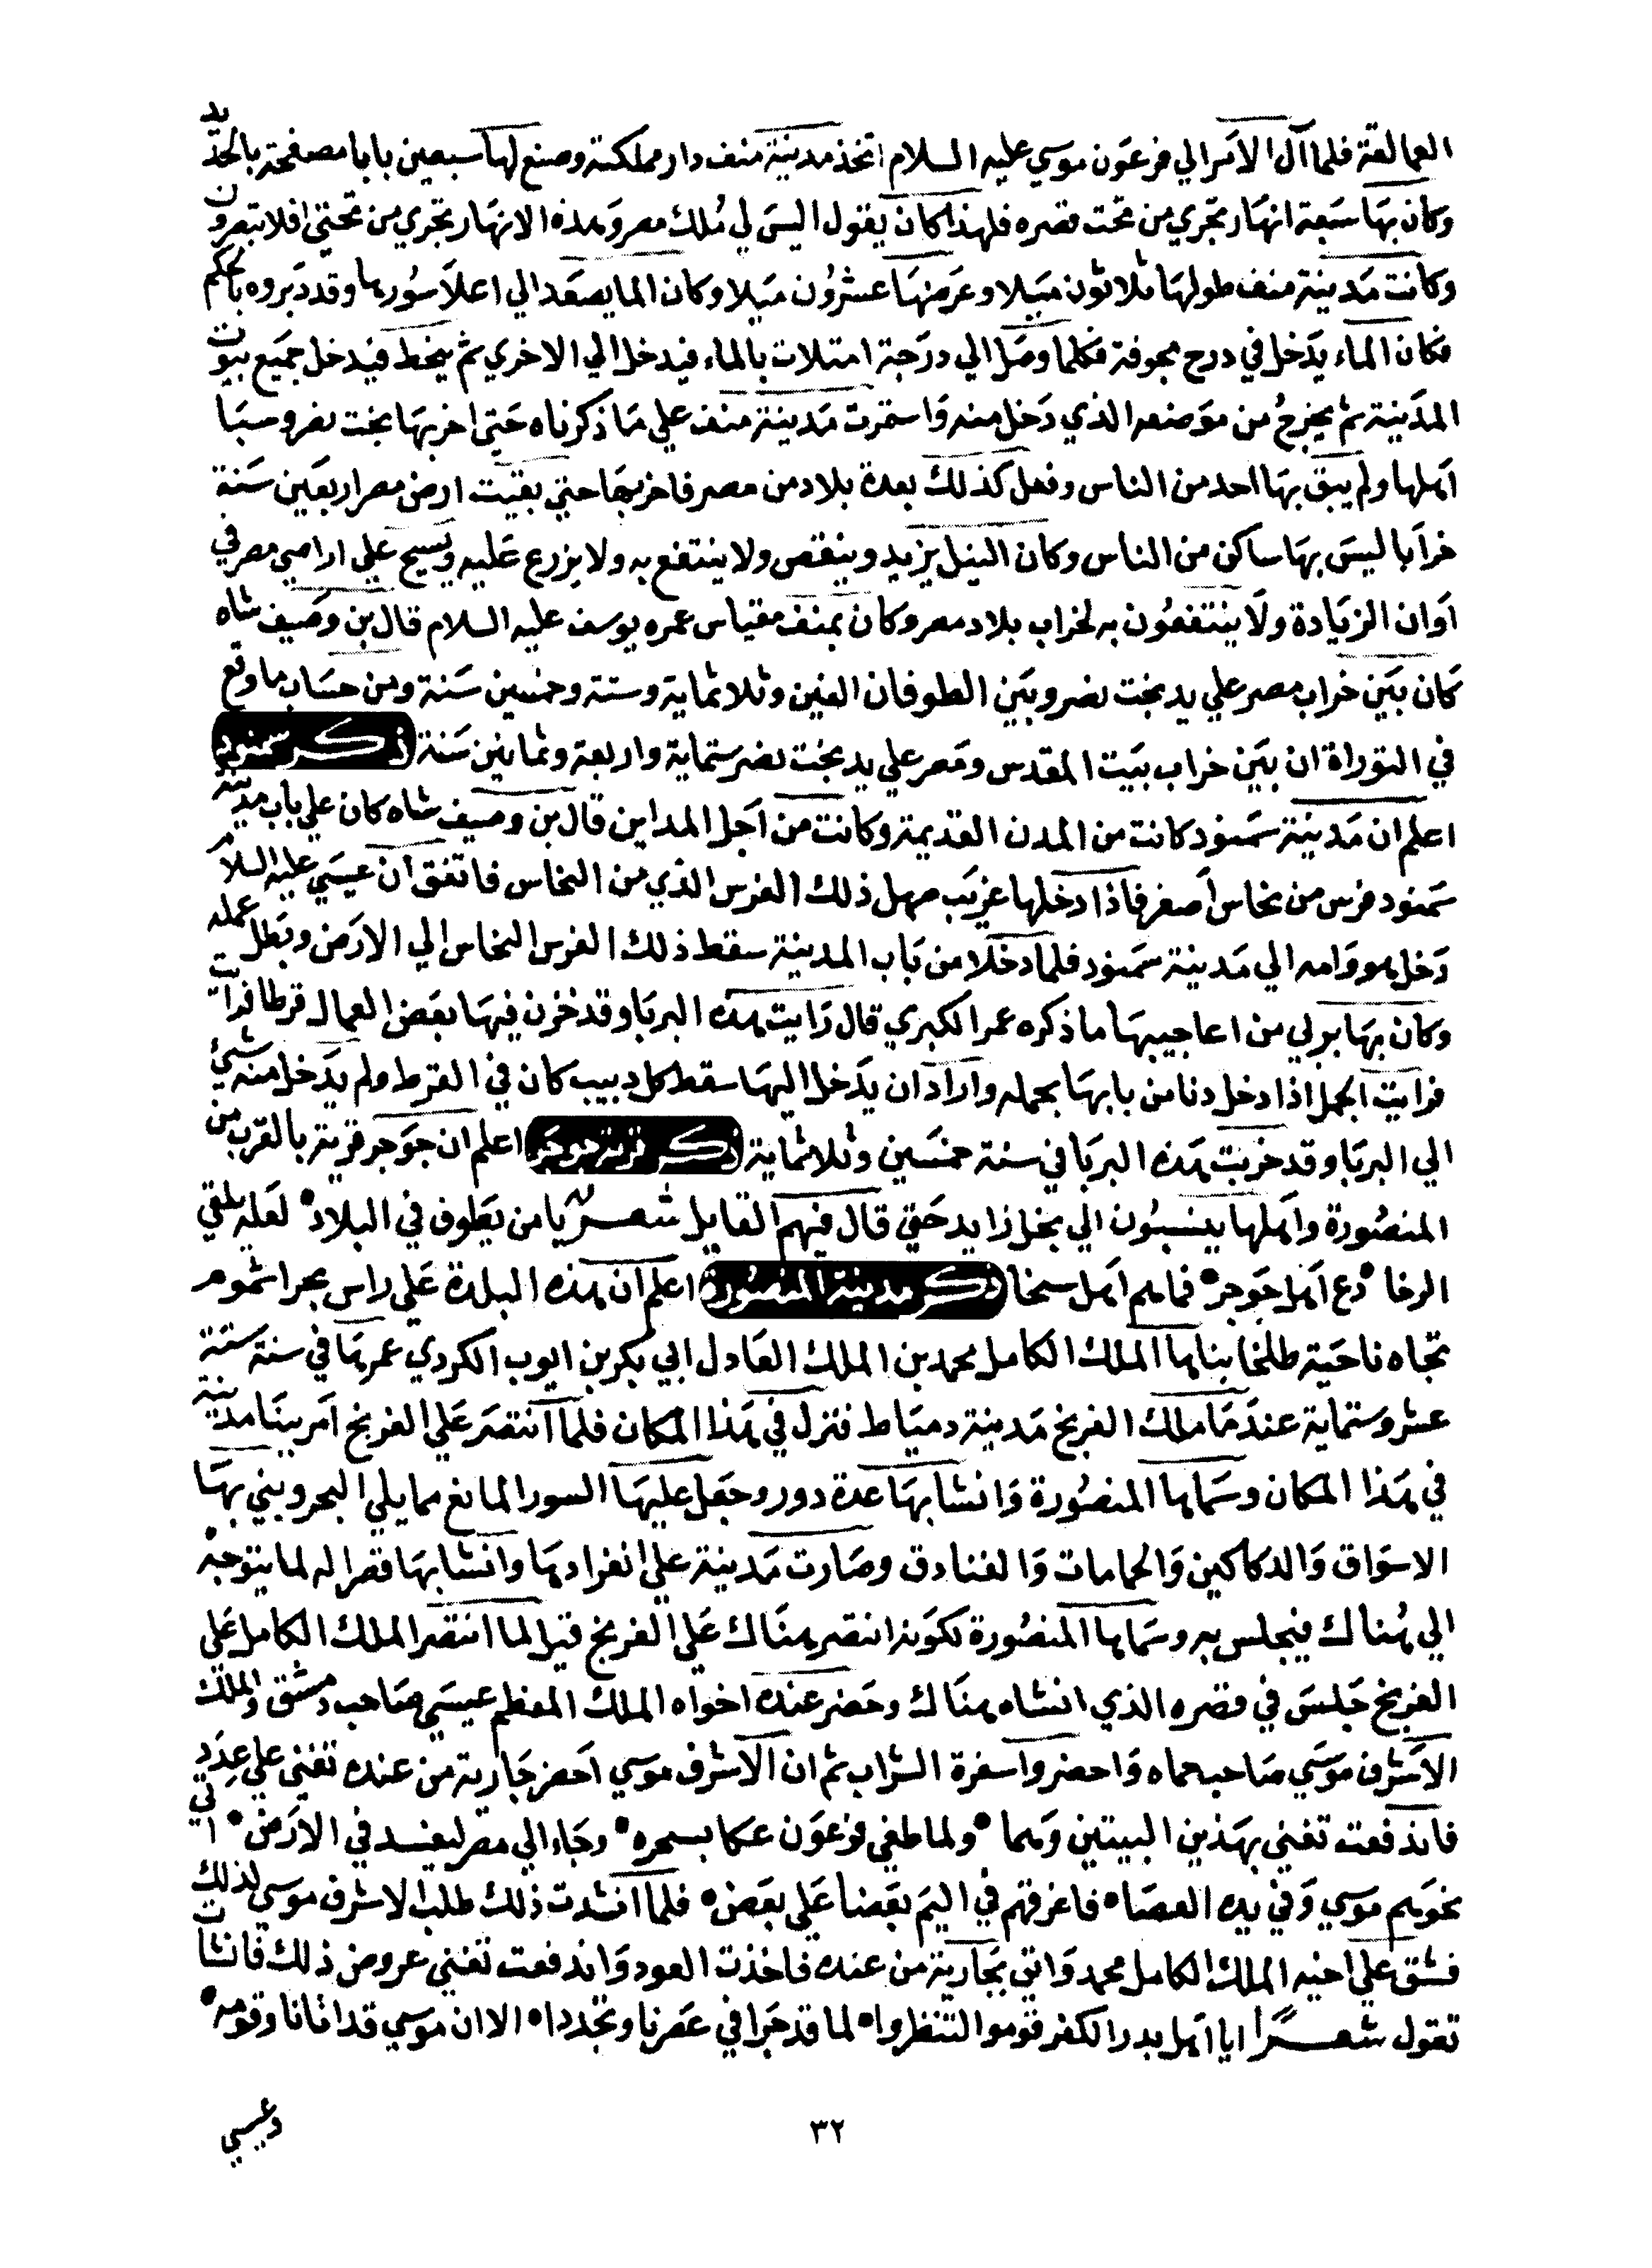 العمالقة فلما آل الامر الي فرعون موسي عليه السلام اتخذ مدينة منف دار مملكته وصنع لها سبعين بابا مصفحة بالحديد
وكان بها سبعة انهار تجري من تحت قصره فلهذا كان يقول اليس لي ملك مصر وهذه الانهار تجري من تحتي افلا تبصرون
وكانت مدينة منف طولها ثلاثون ميلا وعرضها عشرون ميلا وكان الما يصعد الي اعلا سورها وقد دبروه بالحكم
فكان الماء يدخل في درج مجوفة فكلما وصل الي درجة امتلات بالماء فيدخل الي الاخري ثم ينحط فيدخل جميع بيوت
المدينة ثم يخرج من موضعه الذي دخل منه واستمرت مدينة منف علي ما ذكرناه حتي اخربها بخت نصر وسبا
اهلها ولم يبق بها احد من الناس وفعل كذلك بعدة بلاد من مصر فاخربها حتي بقيت ارض مصر اربعين سنة
خرابا ليس بها ساكن من الناس وكان النيل يزيد وينقص ولا ينتفع به ولا يزرع عليه ويسيح علي اراضي مصر في
اوان الزيادة ولا ينتفعون به لخراب بلاد مصر وكان بمنف مقياس عمره يوسف عليه السلام قال بن وصيف شاه
كان بين خراب مصر علي يد بخت نصر وبين الطوفان الفين وثلاثماية وستة وخمسين سنة ومن حساب ما وقع
في التوراة ان بين خراب بيت المقدس ومصر علي يد بخت نصر ستماية واربعة وثمانين سنة ذكر سمنود
اعلم ان مدينة سمنود كانت من المدن القديمة وكانت من اجل المداين قال بن وصيف شاه كان علي باب مدينة
سمنود فرس من نحاس اصفر فاذا دخلها غريب صهل ذلك الفرس الذي من النحاس فاتفق ان عيسي عليه السلام
دخل هو وامه الي مدينة سمنود فلما دخلا من باب المدينة سقط ذلك الفرس النحاس الي الارض وبطل عمله
وكان بها بربي من اعاجيبها ما ذكره عمر الكبري قال رايت هذه البربا وقد خزن فيها بعض العمال قرطا فرايت
فرايت الجمل اذا دخل دنا من بابها بحمله واراد ان يدخل اليها سقط كل دبيب كان في القرط ولم يدخل منه شئ
الي البربا وقد خربت هذه البربا في سنة خمسين وثلاثماية ذكر قرية جوجر اعلم ان جوجر قرية بالقرب من
المنصورة واهلها ينسبون الي بخل زايد حتي قال فيهم القايل شعر يا من يطوف في البلاد • لعله يلقي
الرخا • دع اهل جوجر • فما هم اهل سخا ذكر مدينة المنصورة اعلم ان هذه البلدة علي راس بحر اشموم
تجاه ناحية طلخا بناها الملك الكامل محمد بن الملك العادل ابي بكر بن ايوب الكردي عمرها في سنة ستة
عشر وستماية عندما ملك الفرنج مدينة دمياط فنزل في هذا المكان فلما انتصر علي الفرنج امر ببنا مدينة
في هذا المكان وسماها المنصورة وانشا بها عدة دور وجعل عليها السور المانع مما يلي البحر وبني بها
الاسواق والدكاكين والحمامات والفنادق وصارت مدينة علي انفرادها وانشا بها قصرا له لما يتوجه
الي هناك فيجلس به وسماها المنصورة لكونه انتصر هناك علي الفرنج قيل لما انتصر الملك الكامل علي
الفرنج جلس في قصره الذي انشاه هناك وحضر عنده اخواه الملك المعظم عيسي صاحب دمشق والملك
الاشرف موسي صاحب حماه واحضروا سفرة الشراب ثم ان الاشرف موسي احضر جارية من عنده تغني علي عود
فاندفعت تغني بهذين البيتين وهما • ولما طغي فرعون عكا بسحره • وجاء الي مصر ليفسد في الارض • اتي
نحوهم موسي وفي يده العصا • فاغرقهم في اليم بعضا علي بعض • فلما انشدت ذلك طلب الاشرف موسي لذلك
فشق علي اخيه الملك الكامل محمد واتي بجارية من عنده فاخذت العود واندفعت تغني عروض ذلك فانشات
تقول شعرا ايا اهل بدر الكفر قوموا لتنظروا • لما قد جرا في عصرنا وتجددا • الا ان موسي قد اتانا وقومه •
٣٢
وعيسي